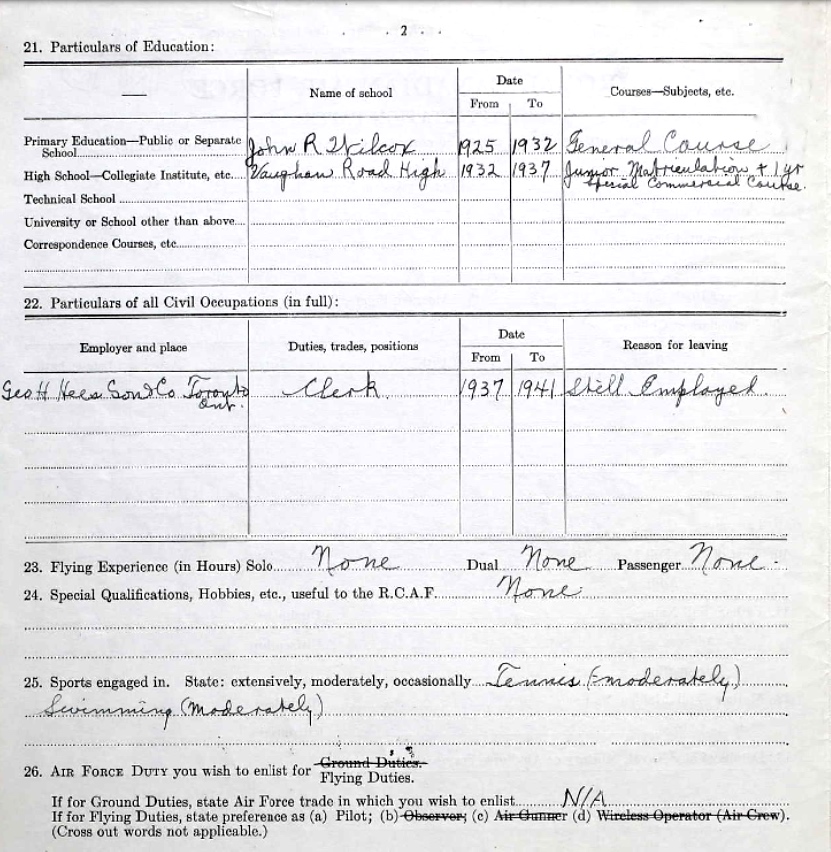 2
21. Particulars of Education:
Name of school
Date
Courses—Subjects, etc.
From To
Primary Education—Public or Separate School John R Wilcox 1925 1932 General Course
High School—Collegiate Institute, etc. Vaughan Road High 1932 1937 Junior Matriculation + 1 yr
Special Commercial Course.
Technical School
University or School other than above
Correspondence Courses, etc.
22. Particulars of all Civil Occupations (in full):
Employer and place Duties, trades, positions
Date
Reason for leaving
From To
Geo H Hees Son & Co Toronto Clerk 1937 1941 Still Employed.
Ont.
23. Flying Experience (in Hours) Solo None Dual None Passenger None.
24. Special Qualifications, Hobbies, etc., useful to the R.C.A.F. None
25. Sports engaged in. State: extensively, moderately, occasionally Tennis (moderately)
Swimming (Moderately)
26. AIR FORCE DUTY you wish to enlist for Ground Duties.
Flying Duties.
If for Ground Duties, state Air Force trade in which you wish to enlist N/A
If for Flying Duties, state preference as (a) Pilot; (b) Observer; (c) Air Gunner (d) Wireless Operator (Air Crew).
(Cross out words not applicable.)